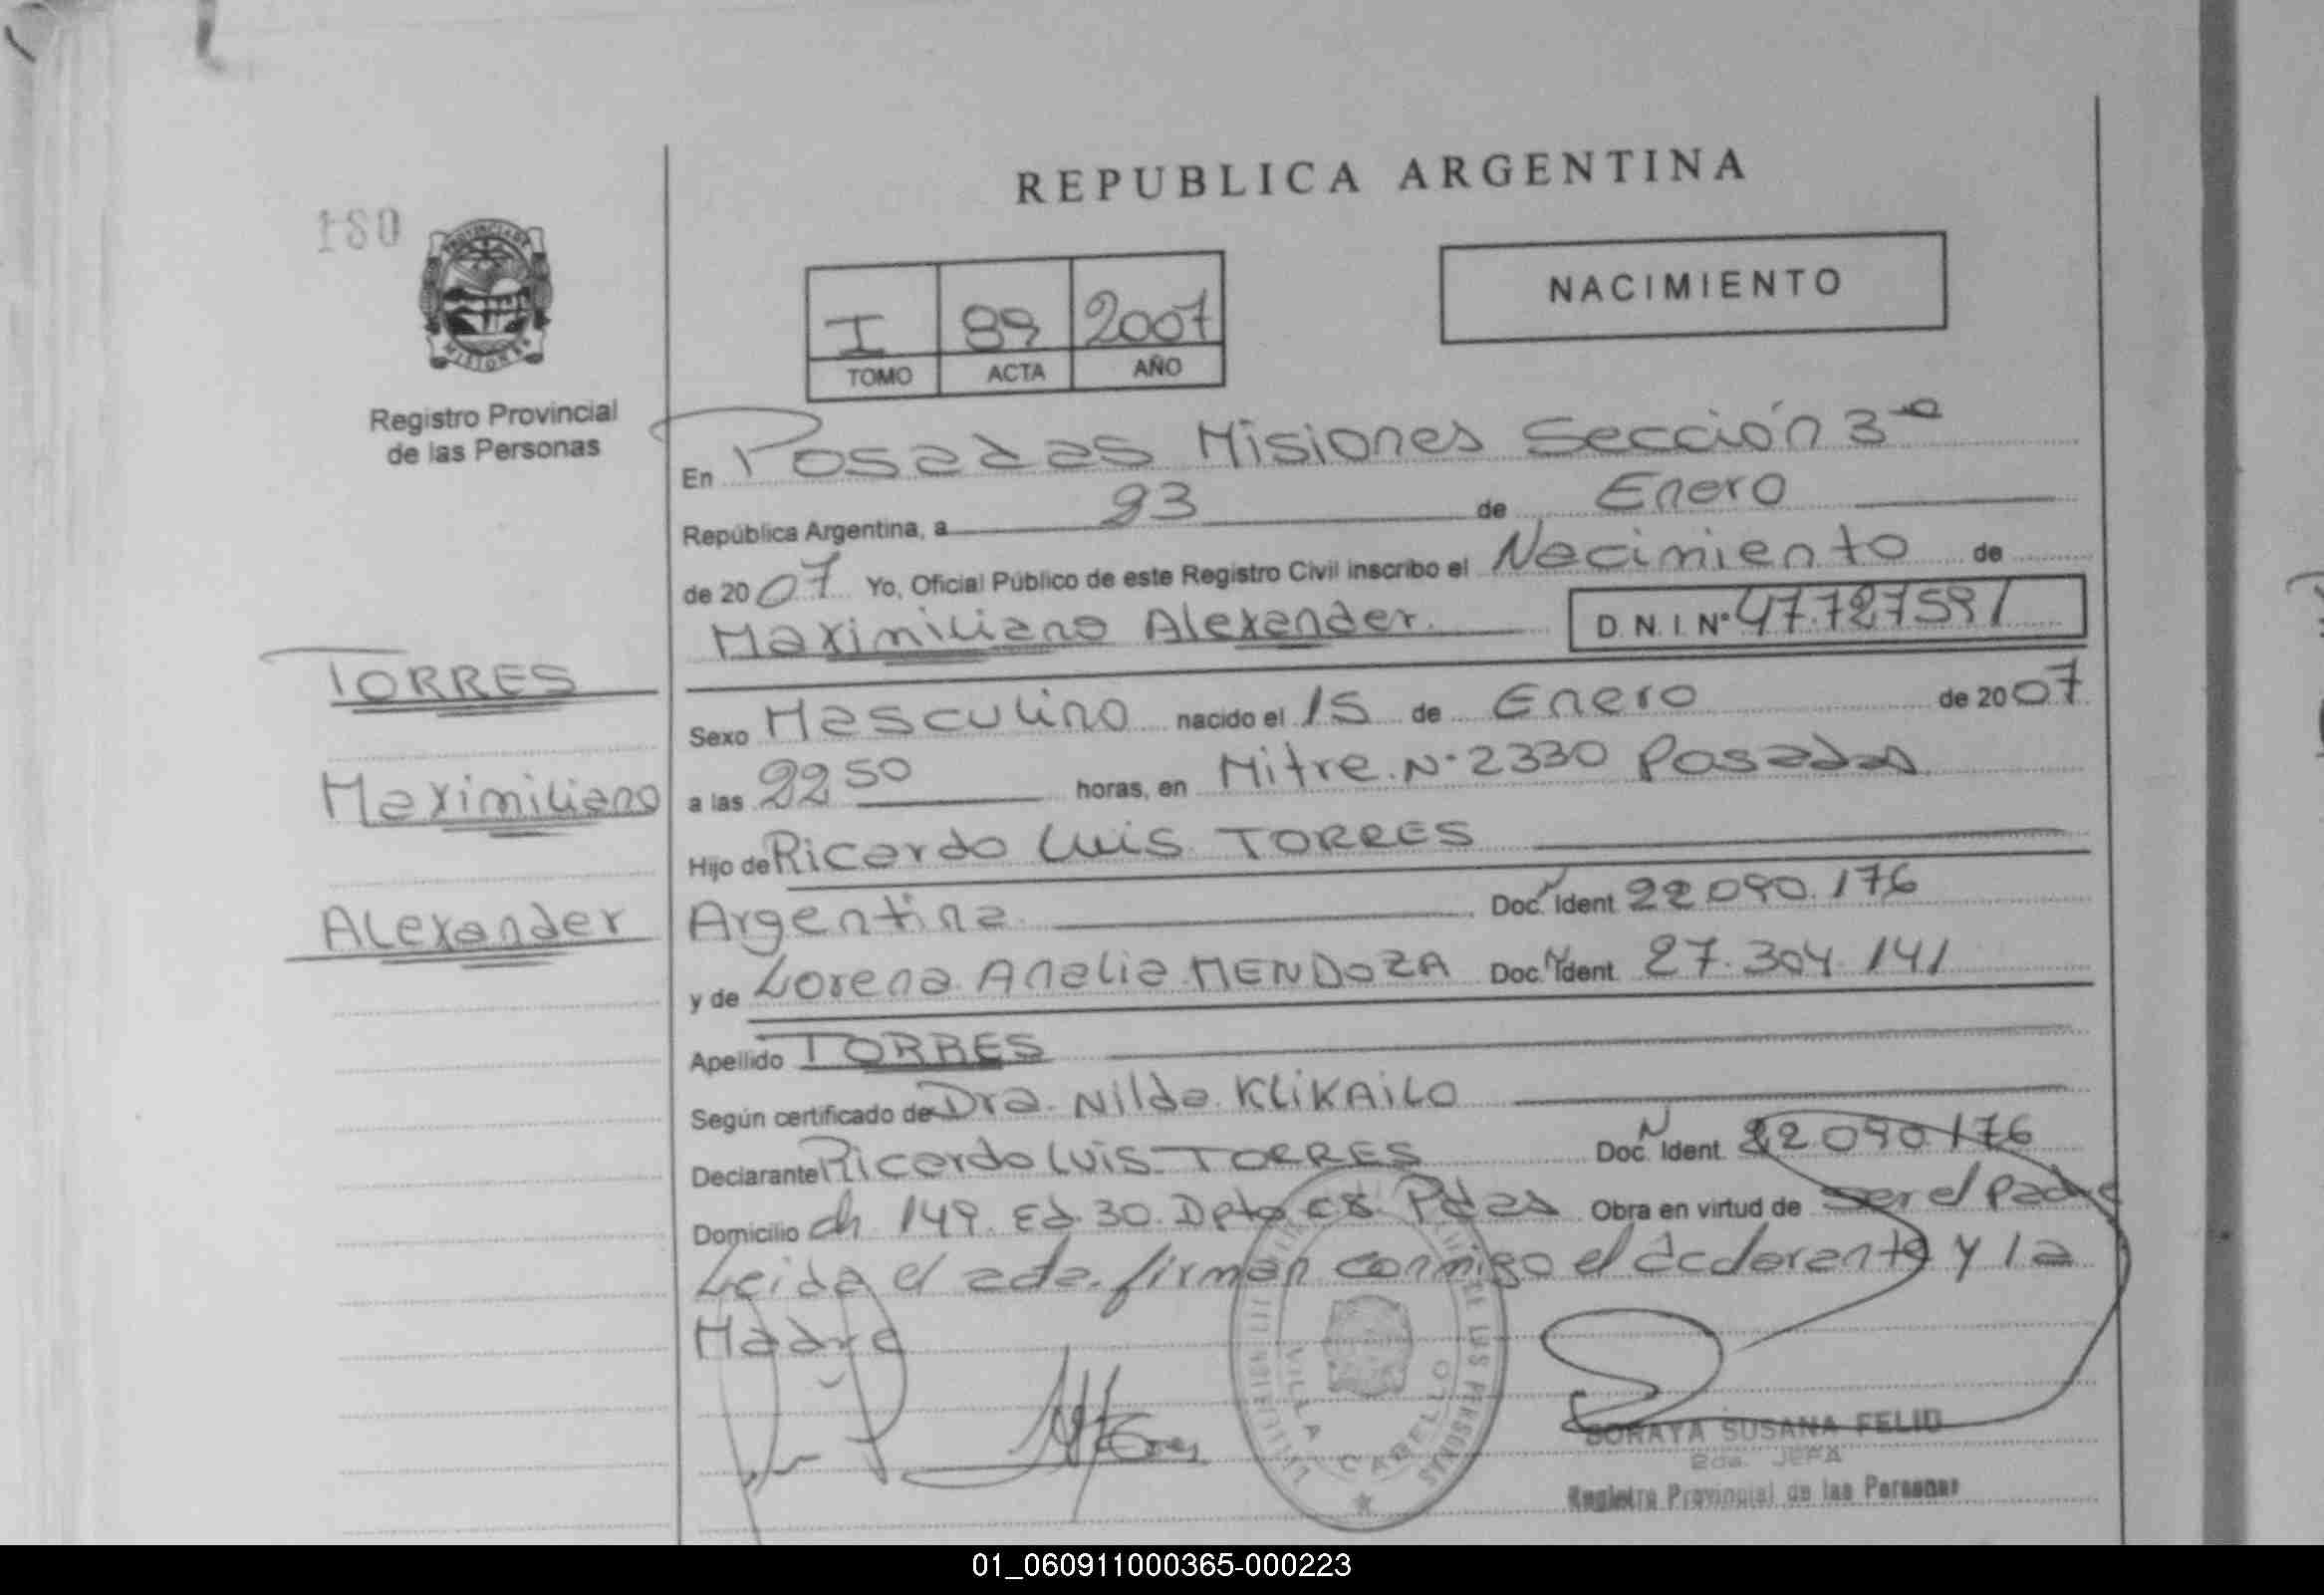 REPUBLICA ARGENTINA
180
PROVINCIA DE
MISIONES
Registro Provincial
de las Personas
NACIMIENTO
I 89 2007
TOMO ACTA AÑO
En Posadas Misiones Sección 3ª
República Argentina, a 23 de Enero
de 2007 Yo, Oficial Público de este Registro Civil inscribo el Nacimiento de
Maximiliano Alexander. D.N.I. Nº 47.727591
TORRES
Maximiliano
Alexander
Sexo Masculino nacido el 15 de Enero de 2007
a las 22 50 horas, en Mitre Nº 2330 Posadas
Hijo de Ricardo Luis TORRES
Argentina Doc. Ident 22090.176
y de Lorena Analia MENDOZA Doc. Ident. 27.304.141
Apellido TORRES
Según certificado de Dra. Nilda KLIKAILO
Declarante Ricardo Luis TORRES Doc. Ident. 22090176
Domicilio ch 149 Ed. 30 Dpto c8 Pdas Obra en virtud de ser el Padre
Leida el acta. firman conmigo el declarante y la
Madre
VILLA CABELLO
SORAYA SUSANA FELID
2da. JEFA
Registro Provincial de las Personas
01_060911000365-000223